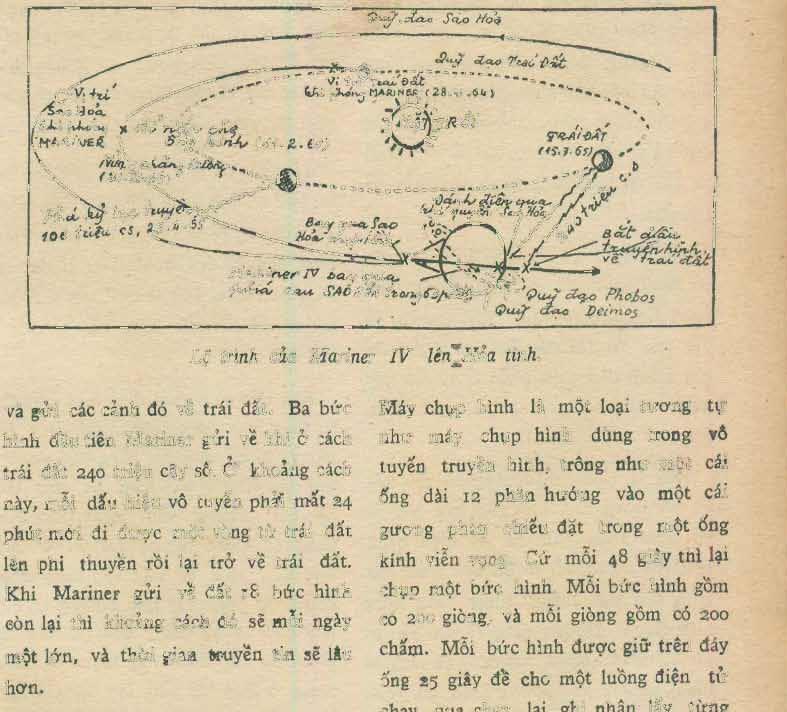 Quỹ đạo Sao Hỏa
Quỹ đạo Trái Đất
Vị trí Trái Đất
khi phóng MARINER (28. .64)
Vị trí
Sao Hỏa
khi phóng
MARINER
TRÁI ĐẤT
(15.7.65)
240 triệu c.s
Đánh điện qua
khí quyển Sao Hỏa
Bay qua Sao
Hỏa
Bắt đầu
truyền hình
về trái đất
Mariner IV bay qua
phía sau SAO HỎA trong
Quỹ đạo Phobos
Quỹ đạo Deimos
Lộ trình của Mariner IV lên Hỏa tinh
và gửi các cảnh đó về trái đất. Ba bức
hình đầu tiên Mariner gửi về khi ở cách
trái đất 240 triệu cây số. Ở khoảng cách
này, mỗi dấu hiệu vô tuyến phải mất 24
phút mới đi được một vòng từ trái đất
lên phi thuyền rồi lại trở về trái đất.
Khi Mariner gửi về đất 18 bức hình
còn lại thì khoảng cách đó sẽ mỗi ngày
một lớn, và thời gian truyền tin sẽ lâu
hơn.
Máy chụp hình là một loại tương tự
như máy chụp hình dùng trong vô
tuyến truyền hình, trông như một cái
ống dài 12 phân hướng vào một cái
gương phản chiếu đặt trong một ống
kính viễn vọng. Cứ mỗi 48 giây thì lại
chụp một bức hình. Mỗi bức hình gồm
có 200 giòng, và mỗi giòng gồm có 200
chấm. Mỗi bức hình được giữ trên đáy
ống 25 giây để cho một luồng điện tử
chạy qua lại ghi nhận lấy từng